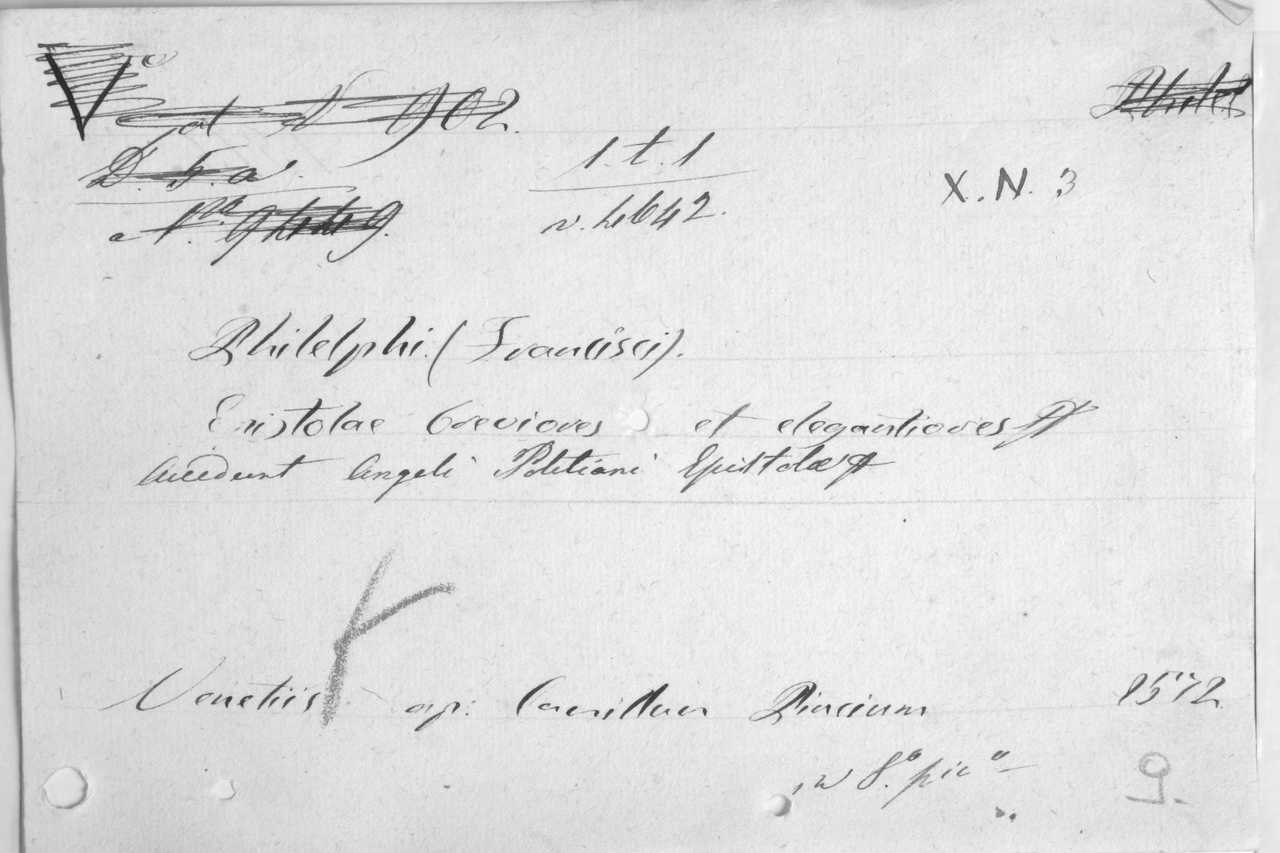 V
Cat N 902.
D. 5. a.
1. t. 1
X. N. 3
v. 4642.
Philelphi (Francisci).
Epistolae breviores et elegantiores
accedunt Angeli Politiani Epistolae
Venetiis ap: Camillum Pincium 1572
in 8.° pic°
9.